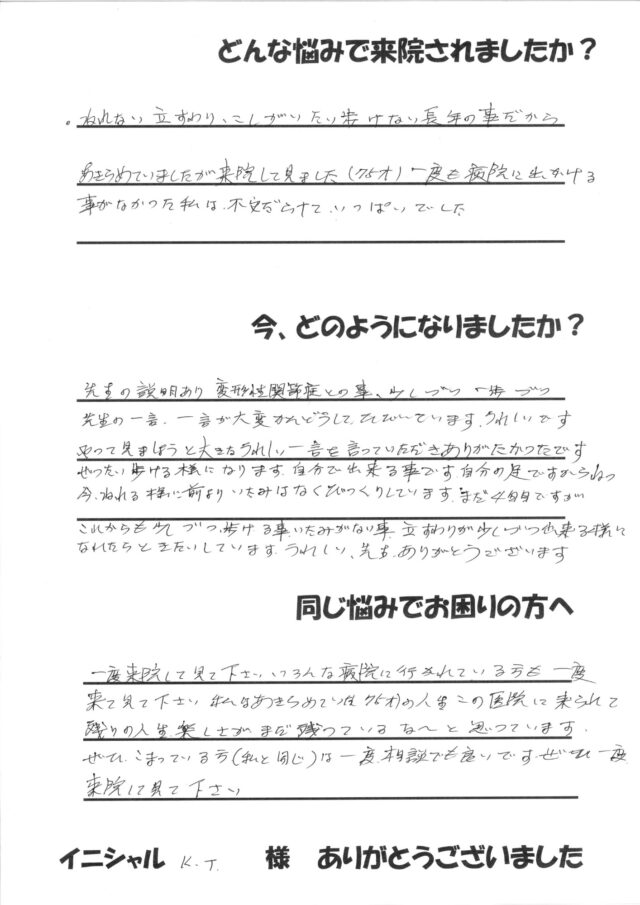 どんな悩みで来院されましたか？
。ねれない 立すわり、こしがいたい 歩けない 長年の事だから
あきらめていましたが来院して見ました(75才) 一度も病院に出かける
事がなかった私は、不安だらけで いっぱいでした
今、どのようになりましたか？
先生の説明あり 変形性関節症との事、少しづつ 一歩づつ
先生の一言、一言が大変 かんどうして います、うれしいです
やって見ましょうと大きなうれしい一言を言っていただきありがたかったです
ぜったい歩ける様になります、自分で出来る事です、自分の足ですからねっ
今、ねれる様に前より いたみはなくびっくりしています、まだ4回目ですが
これからも少しづつ、歩ける事、いたみがない事 立すわりが少しづつ出来る様に
なれたらときたいしています、うれしい、先生、ありがとうございます
同じ悩みでお困りの方へ
一度来院して見て下さい、いろんな病院に行かれている方も 一度
来て見て下さい 私はあきらめていた(75才)の人生 この医院に来られて
残りの人生、楽しさが まだ残っているなーと 思っています、
ぜひ、こまっている方(私と同じ)は一度、相談でも良いです、ぜひ 一度
来院して見て下さい
イニシャル K.T. 様 ありがとうございました